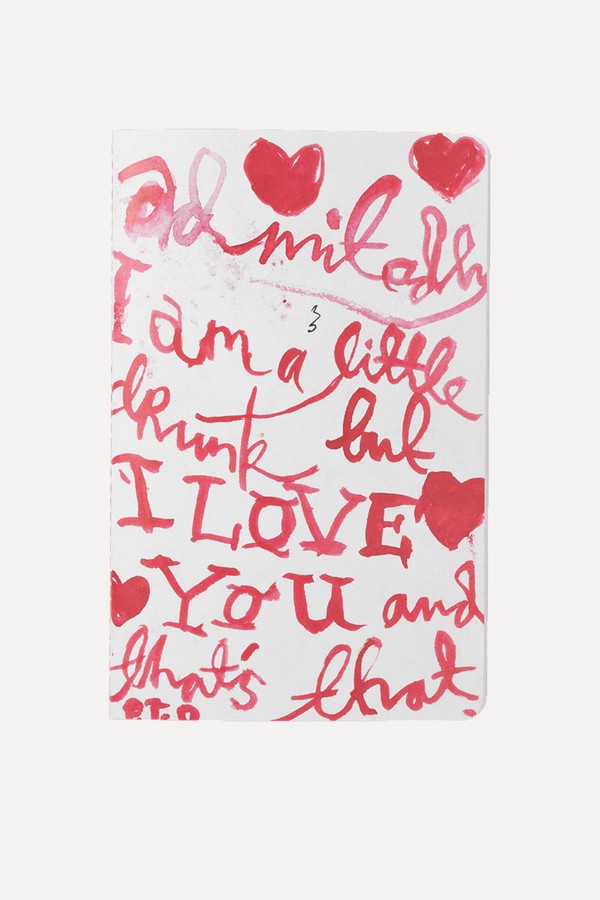 admitedly
I am a little
drunk but
I LOVE
YOU and
that's that
P.T.O